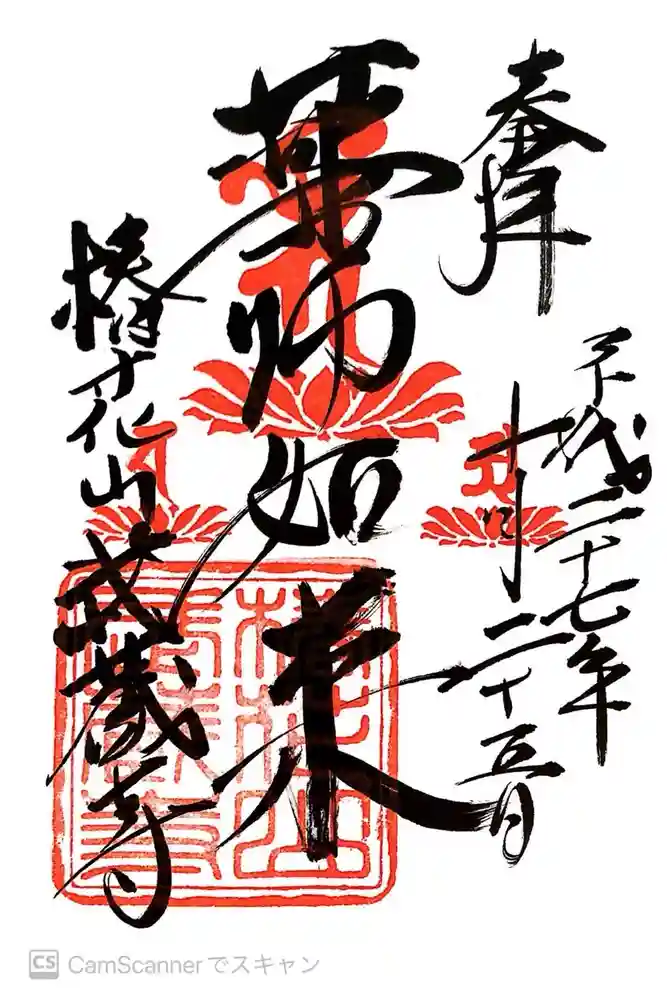 奉拝
平成二十七年
十月二十五日
薬師如来
椿花山武蔵寺
椿花山
武蔵寺
CS CamScannerでスキャン